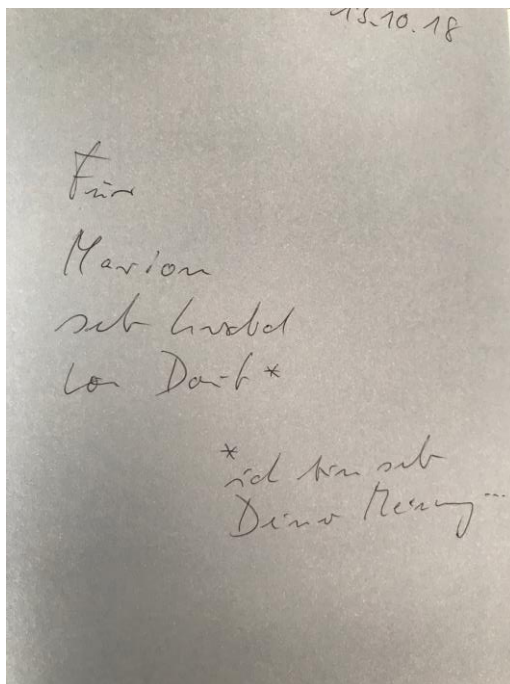 13.10.18
Für
Marion
sehr herzlich
von *
*
ich bin sehr
Deiner Meinung...